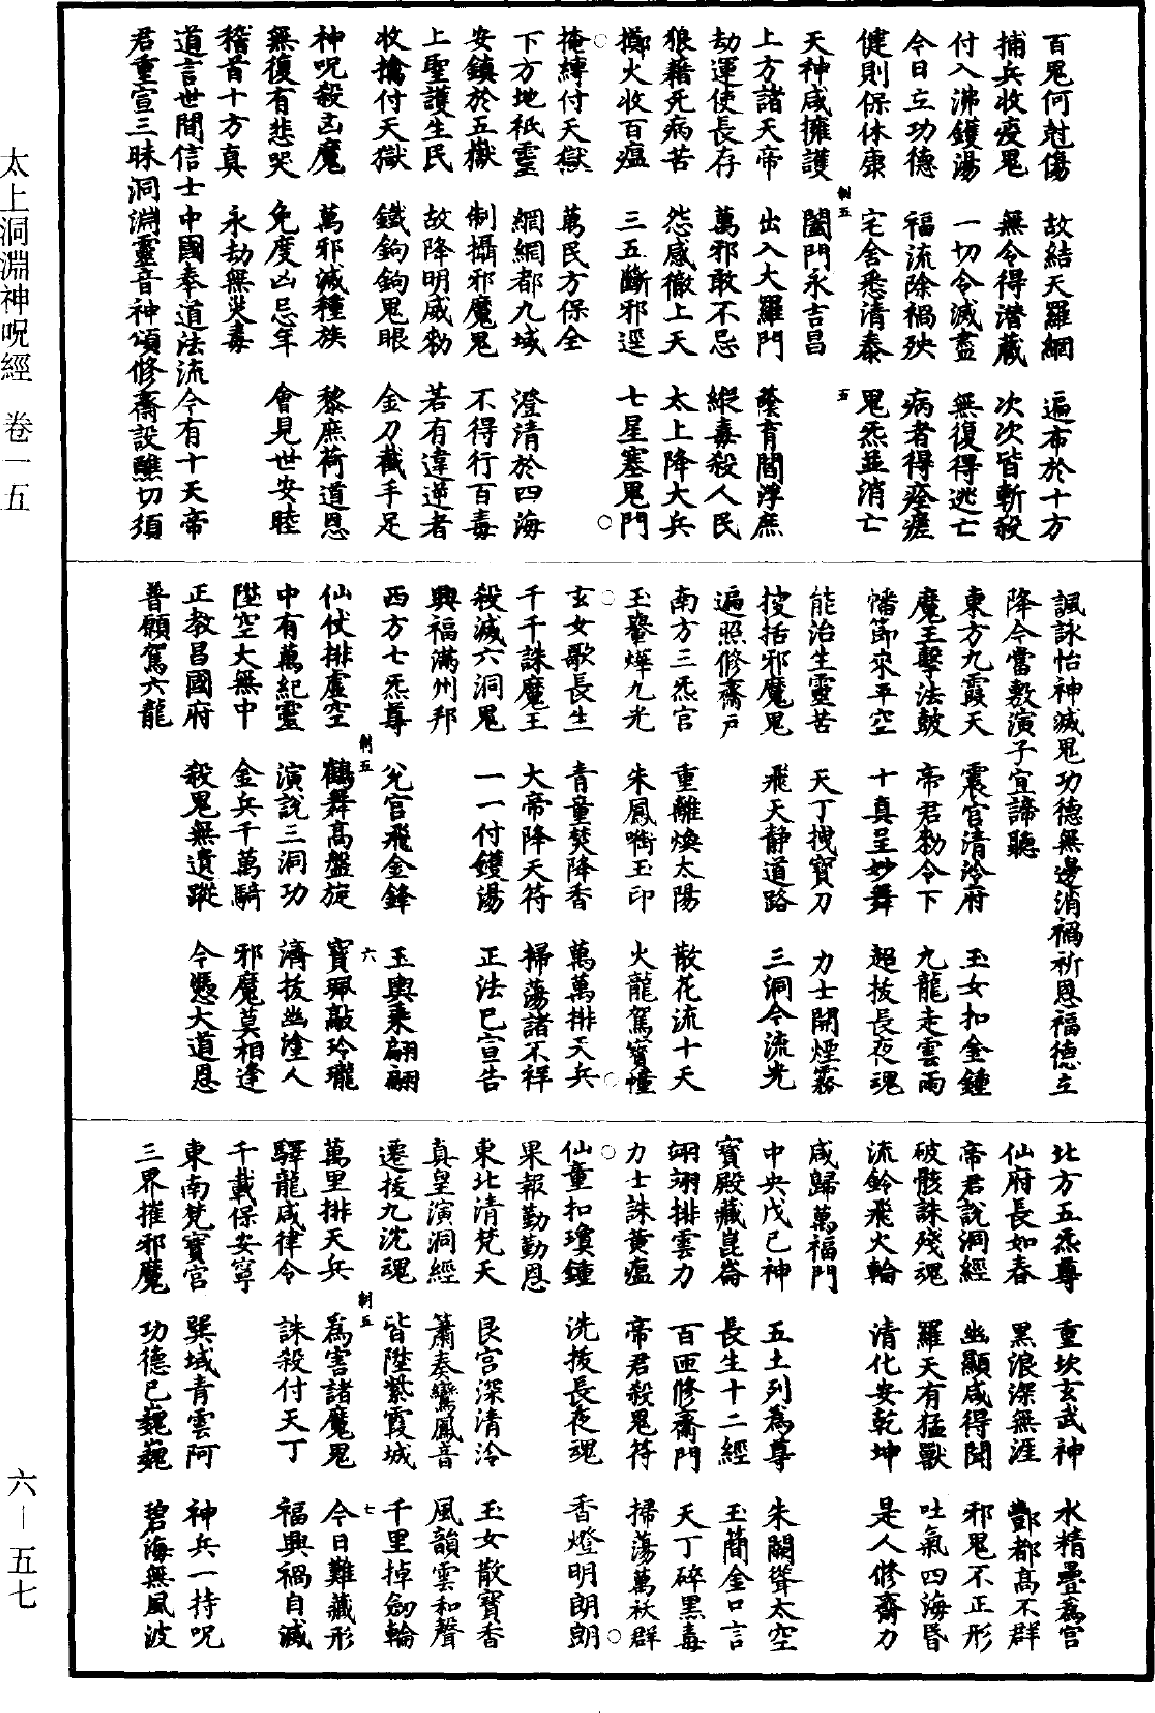 百鬼何尅傷　故結天羅網　遍布於十方
捕兵收疫鬼　無令得潛藏　次次皆斬殺
付入沸鑊湯　一切令滅盡　無復得逃亡
今日立功德　福流除禍殃　病者得痊瘥
健則保休康　宅舍悉清泰　鬼炁並消亡
天神咸擁護　闔門永吉昌
上方諸天帝　出入大羅門　蔭育閻浮庶
劫運使長存　萬邪敢不忌　縱毒殺人民
狼藉死病苦　怨感徹上天　太上降大兵
擲火收百瘟　三五斷邪逕　七星塞鬼門
掩縛付天獄　萬民方保全
下方地祇靈　網網都九域　澄清於四海
安鎮於五嶽　制攝邪魔鬼　不得行百毒
上聖護生民　故降明威勑　若有違逆者
收擒付天獄　鐵鉤鉤鬼眼　金刀截手足
神呪殺凶魔　萬邪滅種族　黎庶荷道恩
無復有悲哭　免度凶忌年　會見世安睦
稽首十方真　永劫無災毒
道言世間信士中國奉道法流今有十天帝
君重宣三昧洞淵靈音神頌修齋設醮切須
諷詠怡神滅鬼功德無邊消禍祈恩福德立
降今當敷演子宜諦聽
東方九霞天　震宮清泠府　玉女扣金鍾
魔王擊法鼓　帝君勑令下　九龍走雲雨
幡節來平空　十真呈妙舞　超拔長夜魂
能治生靈苦　天丁拽寶刀　力士開煙霧
按括邪魔鬼　飛天靜道路　三洞令流光
遍照修齋戶
南方三炁官　重離煥太陽　散花流十天
玉轝燁九光　朱鳳啣玉印　火龍駕寶幢
玄女歌長生　青童焚降香　萬萬排天兵
千千誅魔王　大帝降天符　掃蕩諸不祥
殺滅六洞鬼　一一付鑊湯　正法已宣告
興福滿州邦
西方七炁尊　兌宮飛金鋒　玉輿乘翩翩
仙仗排虛空　鶴舞高盤旋　寶珮敲玲瓏
中有萬紀靈　演說三洞功　濟拔幽塗人
陞空大無中　金兵千萬騎　邪魔莫相逢
正教昌國府　殺鬼無遺蹤　今憑大道恩
普願駕六龍
北方五炁尊　重坎玄武神　水精疊為宮
仙府長如春　黑浪深無涯　酆都高不群
帝君說洞經　幽顯咸得聞　邪鬼不正形
破骸誅殘魂　羅天有猛獸　吐氣四海昏
流鈴飛火輪　清化安乾坤　是人修齋力
咸歸萬福門
中央戊己神　五土列為尊　朱闕聳太空
寶殿藏崑崙　長生十二經　玉簡金口言
翊翊排雲力　百匝修齋門　天丁碎黑毒
力士誅黃瘟　帝君殺鬼符　掃蕩萬祆群
仙童扣瓊鍾　洗拔長夜魂　香燈明朗朗
果報勤勤恩
東北清梵天　艮宮深清泠　玉女散寶香
真皇演洞經　簫奏鸞鳳音　風韻雲和聲
遷拔九沈魂　皆陞紫霞城　千里掉劍輪
萬里排天兵　為害諸魔鬼　今日難藏形
驛龍咸律令　誅殺付天丁　福興禍自滅
千載保安寧
東南梵寶宮　巽域青雲阿　神兵一持呪
三界摧邪魔　功德已巍巍　碧海無風波
太上洞淵神呪經　卷一五
六－五七